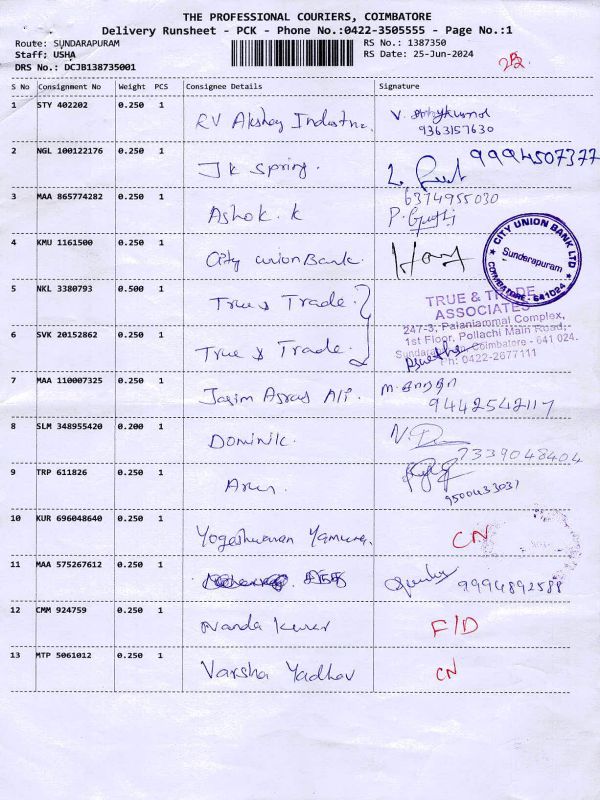 THE PROFESSIONAL COURIERS, COIMBATORE
Delivery Runsheet - PCK - Phone No.:0422-3505555 - Page No.:1
Route: SUNDARAPURAM
Staff; USHA
DRS No.: DCJB138735001
RS No.: 1387350
RS Date: 25-Jun-2024
S No Consignment No Weight PCS Consignee Details Signature
1 STY 402202 0.250 1 RV Akshay
9363157630
2 NGL 100122176 0.250 1 JK Spring. 9994507377
3 MAA 865774282 0.250 1 Ashok. K 6374955030
4 KMU 1161500 0.250 1 City union Bank.
CITY UNION BANK LTD
Sundarapuram
COIMBATORE - 641024
5 NKL 3380793 0.500 1 True & Trade.
6 SVK 20152862 0.250 1 True & Trade.
TRUE & TRADE
ASSOCIATES
247-3, Palaniammal Complex,
1st Floor, Pollachi Main Road,
Coimbatore - 641 024.
Ph: 0422-2677111
7 MAA 110007325 0.250 1 Ali.
9442542117
8 SLM 348955420 0.200 1 Dominik.
7339048404
9 TRP 611826 0.250 1 Arun.
9500433031
10 KUR 696048640 0.250 1 CN
11 MAA 575267612 0.250 1 9994892588
12 CMM 924759 0.250 1 Nanda Kumar F/D
13 MTP 5061012 0.250 1 Varsha Yadhav CN